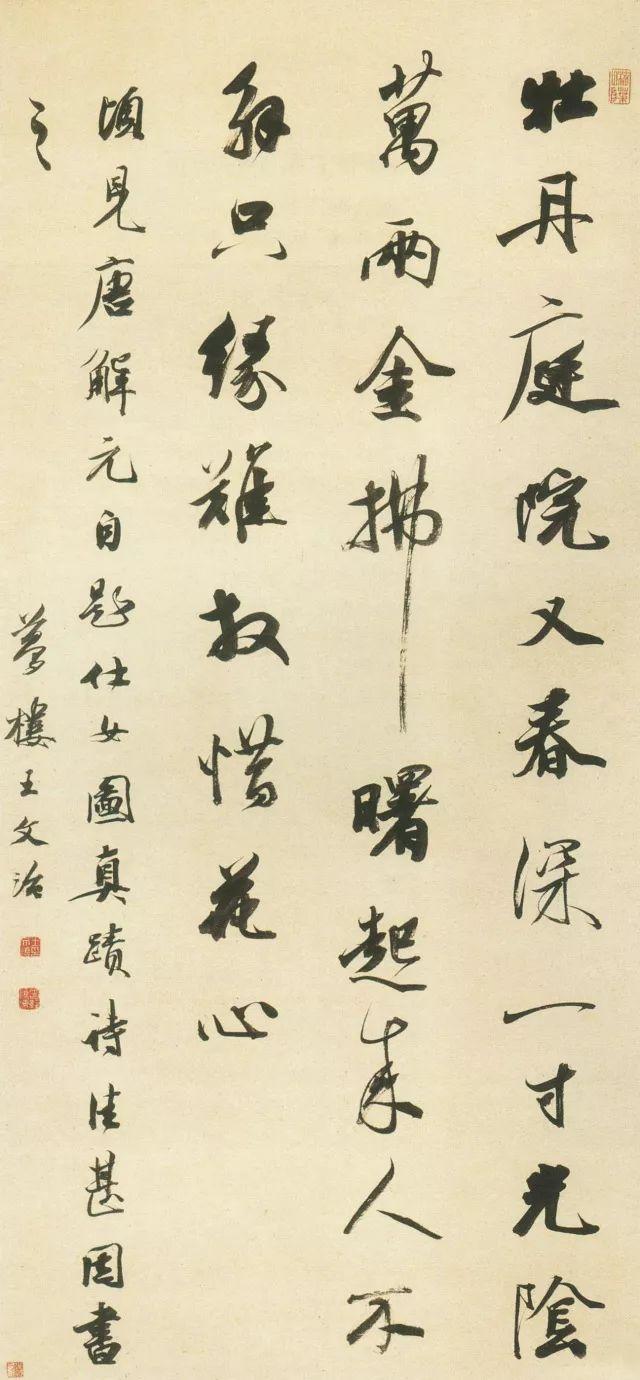 牡丹庭院又春深一寸光陰
萬兩金拂曙起來人不
解只緣難放惜花心
頃見唐解元自題仕女圖真蹟詩佳甚因書
之
夢樓王文治